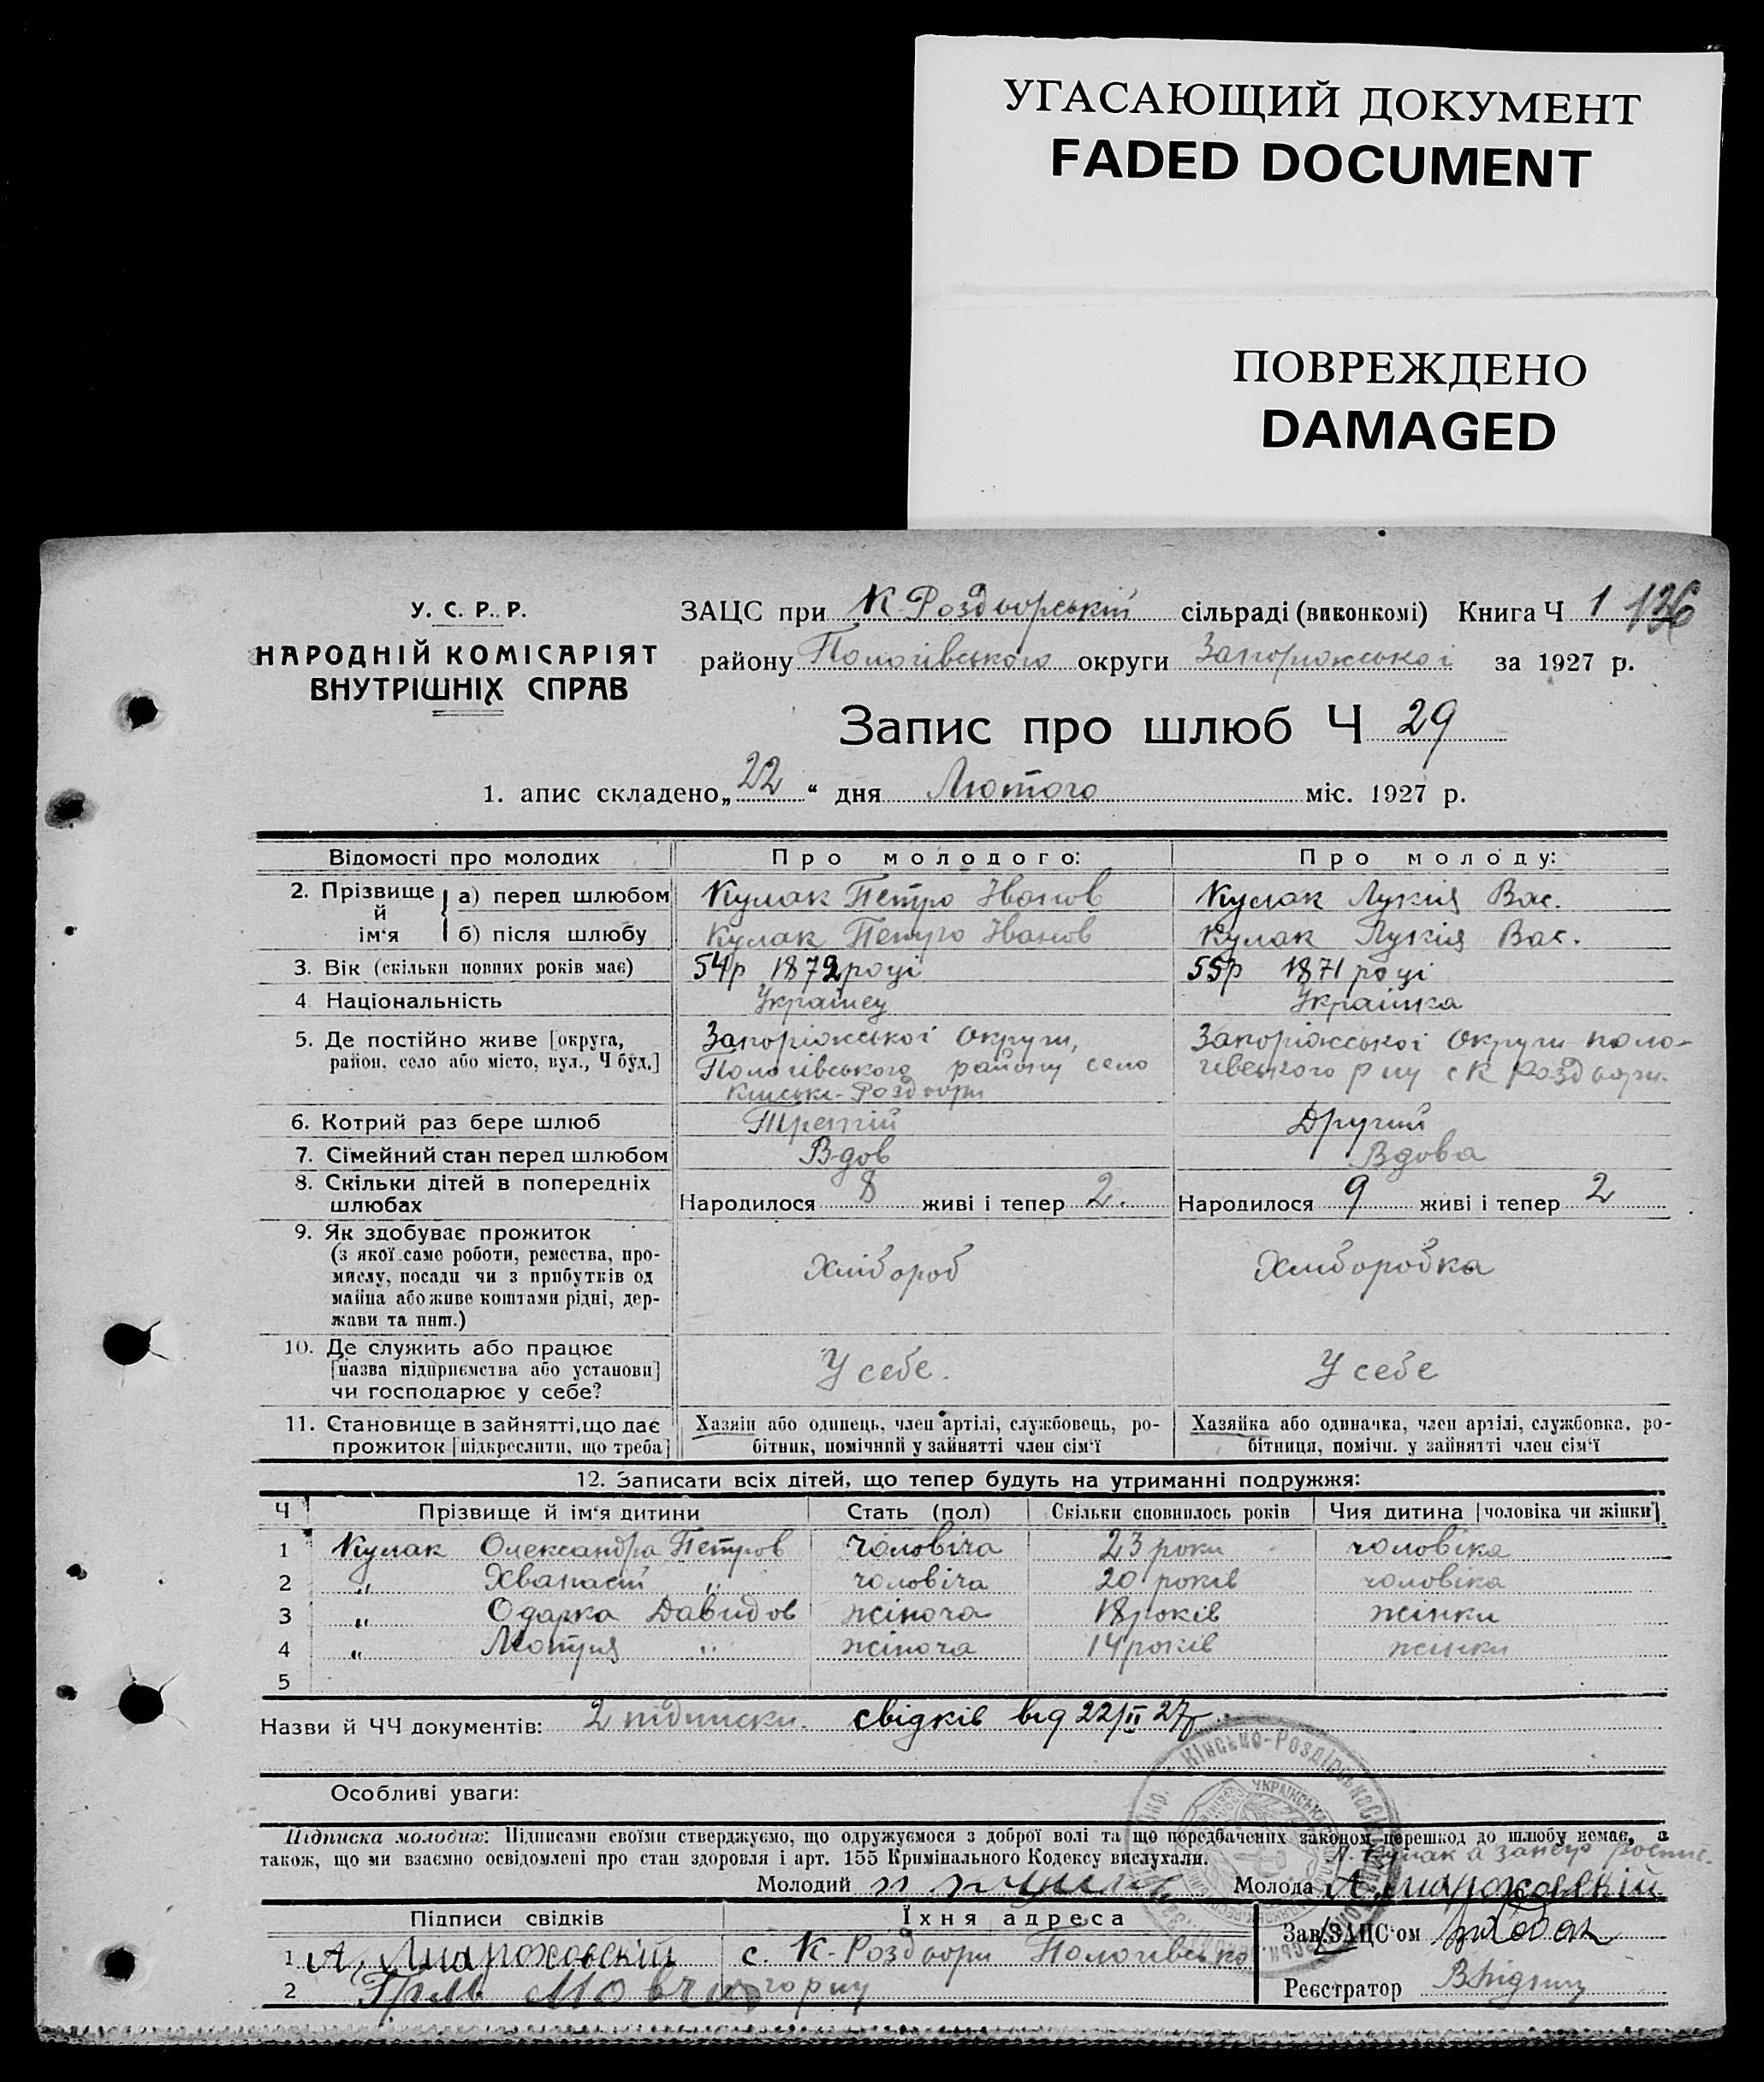 УГАСАЮЩИЙ ДОКУМЕНТ
FADED DOCUMENT
ПОВРЕЖДЕНО
DAMAGED
У. С. Р. Р.
НАРОДНІЙ КОМІСАРІЯТ
ВНУТРІШНІХ СПРАВ
ЗАЦС при К. Роздорській сільраді (виконкомі) Книга Ч 1 136
району Пологівського округи Запоріжської за 1927 р.
Запис про шлюб Ч 29
1. апис складено „22“ дня Лютого міс. 1927 р.
Відомості про молодих Про молодого: Про молоду:
2. Прізвище й ім‘я а) перед шлюбом Кулак Петро Іванов Кулак Лукія Вас.
б) після шлюбу Кулак Петро Іванов Кулак Лукія Вас.
3. Вік (скільки повних років має) 54р 1872 році 55р 1871 році
4 Національність Українец Українка
5. Де постійно живе [округа, район, село або місто, вул., Ч буд.] Запоріжської Округи, Пологівського району село Кінські-Роздори Запоріжської Округи Пологівського р ну с К Роздори.
6. Котрий раз бере шлюб Третій Другий
7. Сімейний стан перед шлюбом Вдов Вдова
8. Скільки дітей в попередніх шлюбах Народилося 8 живі і тепер 2. Народилося 9 живі і тепер 2
9. Як здобуває прожиток
(з якої саме роботи, ремества, про-
мислу, посади чи з прибутків од
майна або живе коштами рідні, дер-
жави та инш.) Хлібороб Хліборобка
10. Де служить або працює
[назва підприємства або установи]
чи господарює у себе? У себе. У себе
11. Становище в зайнятті, що дає прожиток [підкреслити, що треба] Хазяїн або одинець, член артілі, службовець, ро-
бітник, помічний у зайнятті член сім‘ї Хазяйка або одиначка, член артілі, службовка, ро-
бітниця, помічн. у зайнятті член сім‘ї
12. Записати всіх дітей, що тепер будуть на утриманні подружжя:
Ч Прізвище й ім‘я дитини Стать (пол) Скільки сповнилось років Чия дитина [чоловіка чи жінки]
1 Кулак Олександра Петров чоловіча 23 роки чоловіка
2 „ Хванасій „ чоловіча 20 років чоловіка
3 „ Одарка Давидов жіноча 18 років жінки
4 „ Мотря „ жіноча 14 років жінки
5
Назви й ЧЧ документів: 2 підписки. свідків від 22/II 27р.
Особливі уваги:
Підписка молодих: Підписами своїми стверджуємо, що одружуємося з доброї волі та що передбачених законом перешкод до шлюбу немає, а
також, що ми взаємно освідомлені про стан здоровля і арт. 155 Кримінального Кодексу вислухали.
Молодий Молода
Підписи свідків Їхня адреса Зав. ЗАЦС‘ом
1 с. К-Роздори Пологівсько
2 го р ну
Реєстратор